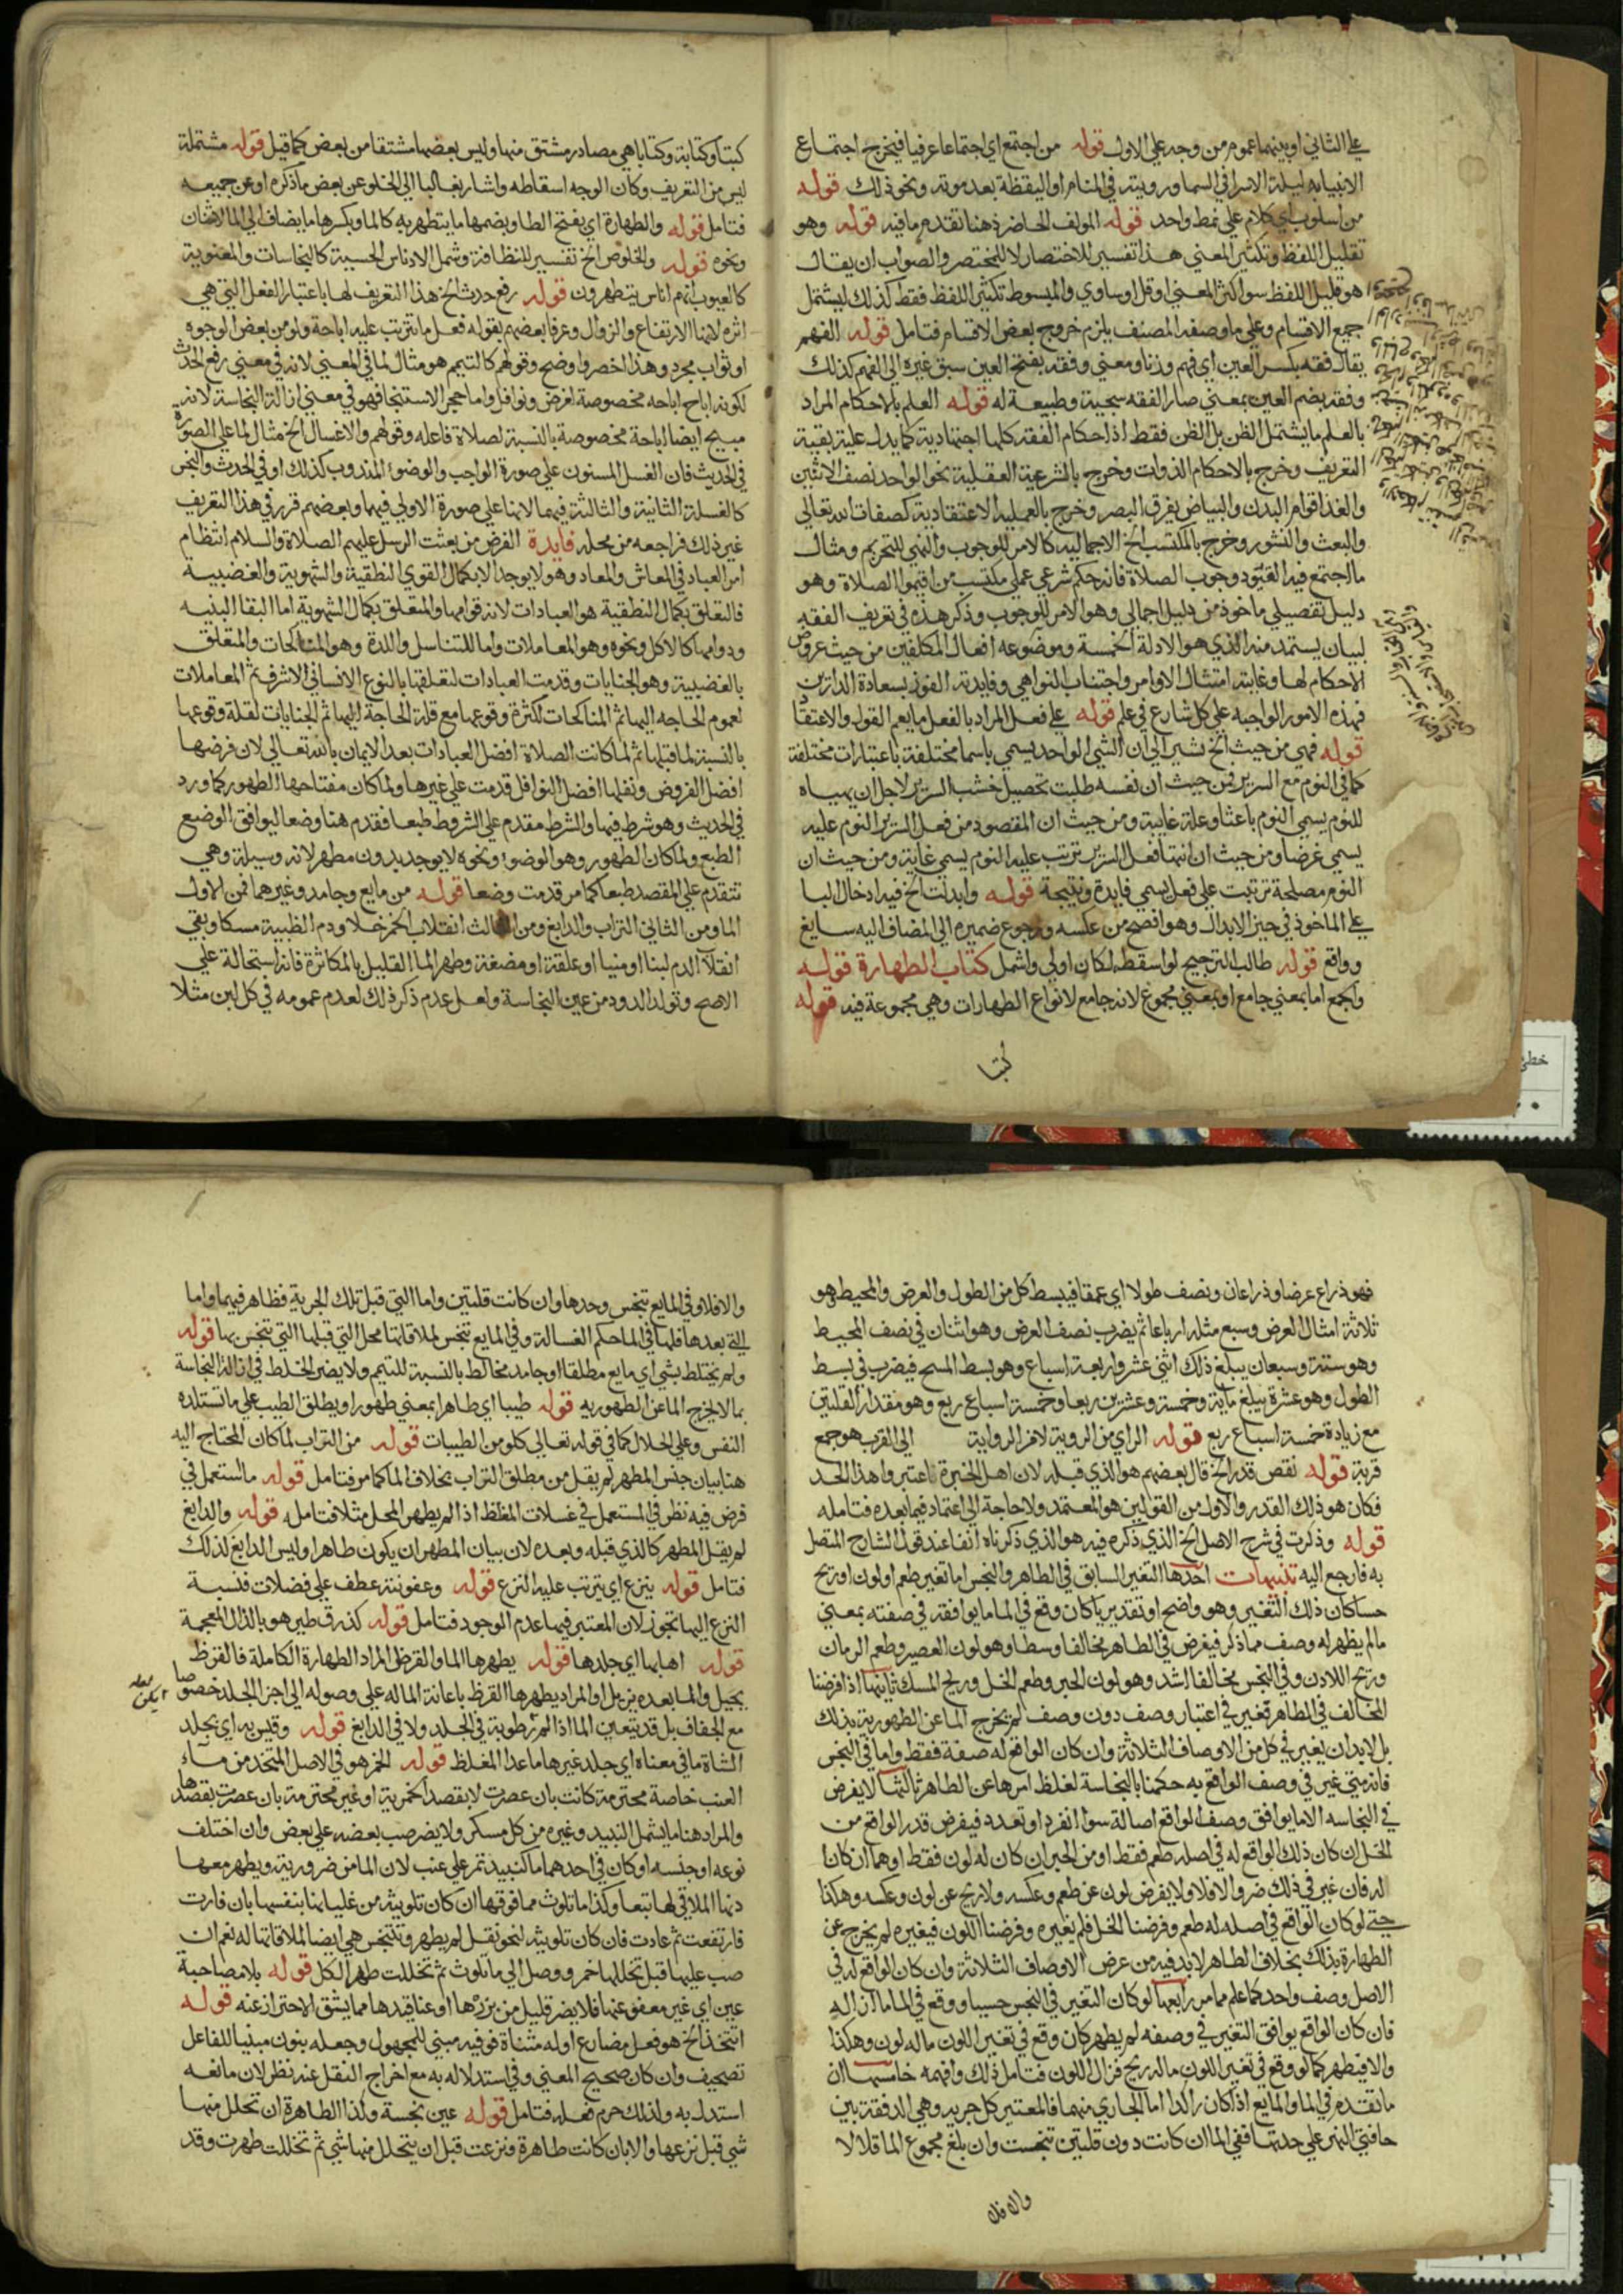 علي الثاني او بينهما عموم من وجه علي الاول قوله من اجتمع اي اجتماعا عرفيا فيخرج اجتماع
الانبيا به ليلة الاسرا في السما ورويته في المنام او اليقظة بعد موته ونحو ذلك قوله
من اسلوب اي كلام علي نمط واحد قوله المولف الحاضر ذهنا تقدم ما فيه قوله وهو
تقليل اللفظ وتكثير المعني هذا تفسير للاختصار لا للمختصر والصواب ان يقال
هو قليل اللفظ سوا كثر المعني او قل او ساوي والمبسوط تكثير اللفظ فقط كذلك ليشتمل
جميع الاقسام وعلي ما وصفه المصنف يلزم خروج بعض الاقسام فتامل قوله الفهم
يقال فقه بكسر العين اي فهم وزنا ومعني وفقه بفتح العين سبق غيره الي الفهم كذلك
وفقه بضم العين بمعني صار الفقه سجية وطبيعة له قوله العلم بالاحكام المراد
بالعلم ما يشتمل الظن بل الظن فقط اذ احكام الفقه كلها اجتهادية كما يدل عليه بقية
التعريف وخرج بالاحكام الذوات وخرج بالشرعية العقلية نحو الواحد نصف الاثنين
والغذا قوام البدن والبياض يفرق البصر وخرج بالعملية الاعتقادية كصفات الله تعالي
والبعث والنشور وخرج بالمكتسب الخ الاجمالية كالامر للوجوب والنهي للتحريم ومثال
ما اجتمع فيه القيود وجوب الصلاة فانه حكم شرعي عملي مكتسب من اقيموا الصلاة وهو
دليل تفصيلي ماخوذ من دليل اجمالي وهو الامر للوجوب وذكر هذه في تعريف الفقه
لبيان يستمد منه الذي هو الادلة الخمسة وموضوعه افعال المكلفين من حيث عروض
الاحكام لها وغايته امتثال الاوامر واجتناب النواهي وفايدته الفوز بسعادة الدارين
فهذه الامور الواجبه علي كل شارع في علم قوله علي فعل المراد بالفعل ما يعم القول والاعتقاد
قوله فهي من حيث الخ نشير الي ان الشي الواحد يسمي باسما مختلفة باعتبارات مختلفة
كما في النوم مع السرير فمن حيث ان نفسه طلبت تحصيل خشب السرير لاجل ان يهياه
للنوم يسمي النوم باعثا وعلة غايية ومن حيث ان المقصود من فعل السرير النوم عليه
يسمي غرضا ومن حيث ان انتها فعل السرير ترتب عليه النوم يسمي غاية ومن حيث ان
النوم مصلحة ترتبت علي فعل يسمي فايدة ونتيجة قوله وابدلت الخ فيه ادخال البا
علي الماخوذ في حيز الابدال وهو افصح من عكسه ورجوع ضميره الي المضاف اليه سايغ
وواقع قوله طالب الترجيح لو اسقطه لكان اولي واشمل كتاب الطهارة قوله
واجمع اما بمعني جامع او بمعني مجموع لانه جامع لانواع الطهارات وهي مجموعة فيه قوله
كتبا
كتبا وكتابة وكتابا هي مصادر مشتق منها وليس بعضها مشتقا من بعض كما قيل قوله مشتملة
ليس من التعريف وكان الوجه اسقاطه واشار بغالبا الي الخلو عن بعض ما ذكره او عن جميعه
فتامل قوله والطهارة اي بفتح الطا وبضمها ما يتطهر به كالما وبكسرها ما يضاف الي الما
ونحوه قوله والخلوص الخ تفسير للنظافة وشمل الادناس الحسية كالنجاسات والمعنوية
كالعيوب انهم اناس يتطهرون قوله رفع حدث الخ هذا التعريف لها باعتبار الفعل التي هي
اثره لانها الارتفاع والزوال وعرفا بعضهم بقوله فعل ما تترتب عليه اباحة ولو من بعض الوجوه
او ثواب مجرد وهذا اخصر واوضح وقولهم كالتيمم هو مثال لما في المعني لانه في معني رفع الحدث
لكونه اباح اباحه مخصوصة لفرض ونوافل واما حجر الاستنجا فهو في معني ازالة النجاسة لانه
مبيح ايضا اباحة مخصوصة بالنسبة لصلاة فاعله وقولهم والاغسال الخ مثال لما علي الصورة
في الحديث فان الغسل المسنون علي صورة الواجب والوضوء المندوب كذلك او في الحدث والنجس
كالغسلة الثانية والثالثة فيهما لانها علي صورة الاولي فيهما وبعضهم قرر في هذا التعريف
غير ذلك فراجعه من محله فايدة الغرض من بعثت الرسل عليهم الصلاة والسلام انتظام
امر العباد في المعاش والمعاد وهو لا يوجد الا بكمال القوي النطقية والشهوية والغضبية
فالتعلق بكمال النطقية هو العبادات لانه قوامها والمتعلق بكمال الشهوية اما البقا البنيه
ودوامها كالاكل ونحوه وهو المعاملات واما للتناسل واللذة وهو المناكحات والمتعلق
بالغضبية وهو الجنايات وقدمت العبادات لتعلقها بالنوع الانساني الاشرف ثم المعاملات
لعموم الحاجه اليها ثم المناكحات لكثرة وقوعها مع قلة الحاجة اليها ثم الجنايات لقلة وقوعها
بالنسبة لما قبلها ثم لما كانت الصلاة افضل العبادات بعد الايمان بالله تعالي لان فرضها
افضل الفروض ونفلها افضل النوافل قدمت علي غيرها ولما كان مفتاحها الطهور كما ورد
في الحديث وهو شرط فيها والشرط مقدم علي المشروط طبعا فقدم هنا وضعا ليوافق الوضع
الطبع ولما كان الطهور وهو الوضوء ونحوه لا يوجد بدون مطهر لانه وسيلة وهي
تتقدم علي المقصد طبعا كما مر قدمت وضعا قوله من مايع وجامد وغيرهما فمن الاول
الما ومن الثاني التراب والدابغ ومن الثالث انقلاب الخمر خلا ودم الظبية مسكا وبقي
انقلاب الدم لبنا او منيا او علقة او مضغة وطهر الما القليل بالمكاثرة فانه استحالة علي
الاصح وتولد الدود من عين النجاسة ولعل عدم ذكر ذلك لعدم عمومه في كل لبن مثلا
فهو ذراع عرضا وذراعان ونصف طولا اي عمقا فيبسط كل من الطول والعرض والمحيط هو
ثلاثة امثال العرض وسبع مثله ارباعا ثم يضرب نصف العرض وهو اثنان في نصف المحيط
وهو ستة وسبعان يبلغ ذلك اثني عشر واربعة اسباع وهو بسط المسح فيضرب في بسط
الطول وهو عشرة يبلغ ماية وخمسة وعشرين ربعا وخمسة اسباع ربع وهو مقدار القلتين
مع زيادة خمسة اسباع ربع قوله الراي من الروية لا من الرواية الي القرب هو جمع
قربة قوله نقص قدر الخ قال بعضهم هو الذي قبله لان اهل الخبرة اعتبروا هذا الحد
فكان هو ذلك القدر والاول من القولين هو المعتمد ولا حاجة الي اعتماد فيما بعده فتامله
قوله وذكرت في شرح الاصل الخ الذي ذكره فيه هو الذي ذكرناه انفا عند قول الشارح المتصل
به فارجع اليه تنبيهات احدها التغير السابق في الطاهر والنجس اما تغير طعم او لون او ريح
حسا كان ذلك التغير وهو واضح او تقديريا كان وقع في الما ما يوافقه في صفته بمعني
ما لم يظهر له وصف مما ذكر فيفرض في الطاهر مخالفا وسطا وهو لون العصير وطعم الرمان
وريح اللادن وفي النجس مخالفا اشد وهو لون الحبر وطعم الخل وريح المسك ثانيها اذا فرضنا
المخالف في الطاهر تغير في اعتبار وصف دون وصف لم يخرج الما عن الطهورية بذلك
بل لا بد ان يغير في كل من الاوصاف الثلاثة وان كان الواقع له صفة فقط واما في النجس
فانه متي غير في وصف الواقع به حكمنا بالنجاسة لغلظ امرها عن الطاهر ثالثها لا يفرض
في النجاسه الا ما يوافق وصف الواقع اصالة سوا انفرد او تعدد فيفرض قدر الواقع من
الخل ان كان ذلك الواقع له في اصله طعم فقط او من الحبر ان كان له لون فقط او هما ان كانا
له فان غير في ذلك ضر والا فلا ولا يفرض لون عن طعم وعكسه ولا ريح عن لون وعكسه وهكذا
حتي لو كان الواقع في اصله له طعم وفرضنا الخل فلم يغيره وفرضنا اللون فيغيره لم يخرج عن
الطهارة بذلك بخلاف الطاهر لا بد فيه من عرض الاوصاف الثلاثة وان كان الواقع له في
الاصل وصف واحد كما علم مما مر رابعها لو كان التغير في النجس حسيا ووقع في الما ما ازاله
فان كان الواقع يوافق التغير في وصفه لم يطهر كان وقع في تغير اللون ما له لون وهكذا
والا فيطهر كما لو وقع في تغير اللون ما له ريح فزال اللون فتامل ذلك وافهمه خامسها ان
ما تقدم في الما والمايع اذا كان راكدا اما الجاري منهما فالمعتبر كل جرية وهي الدفقة بين
حافتي النهر علي حدتها ففي الما ان كانت دون قلتين تنجست وان بلغ مجموع الما قلالا
والا فلا
والا فلا وفي المايع تنجس وحدها وان كانت قلتين واما التي قبل تلك الجرية فظاهر فيهما واما
التي بعدها فلها في الما حكم الغسالة وفي المايع تنجس لملاقاتها محل التي قبلها التي تنجس بها قوله
ولم يختلط بشي اي مايع مطلقا او جامد مخالط بالنسبة للتيمم ولا يضر الخلط في ازالة النجاسة
بما لا يخرج الما عن الطهورية قوله طيبا اي طاهرا بمعني طهورا ويطلق الطيب علي ما تستلذه
النفس وعلي الحلال كما في قوله تعالي كلوا من الطيبات قوله من التراب لما كان المحتاج اليه
هنا بيان جنس المطهر لم يقل من مطلق التراب بخلاف الما كما مر فتامل قوله ما استعمل في
فرض فيه نظر في المستعمل في غسلات المغلظ اذا لم يطهر المحل مثلا فتامله قوله والدابغ
لم يقل المطهر كالذي قبله وبعده لان بيان المطهر ان يكون طاهرا وليس الدابغ لذلك
فتامل قوله ينزع اي يترتب عليه النزع قوله وعفونته عطف علي فضلات فنسبة
النزع اليها تجوز لان المعتبر فيها عدم الوجود فتامل قوله كذرق طير هو بالذال المعجمة
قوله اهابها اي جلدها قوله يطهرها الما والقرظ المراد الطهارة الكاملة فالقرظ
يحيل والما بعده يزيل او المراد يطهرها القرظ باعانة الما له علي وصوله الي اجزا الجلد خصوصا
مع الجفاف بل قد يتعين الما اذا لم رطوبة في الجلد ولا في الدابغ قوله وقيس به اي بجلد
الشاة ما في معناه اي جلد غيرها ما عدا المغلظ قوله الخمر هو في الاصل المتخذ من ماء
العنب خاصة محترمة كانت بان عصرت لا بقصد الخمرية او غير محترمة بان عصرت بقصدها
والمراد هنا ما يشمل النبيذ وغيره من كل مسكر ولا يضر صب بعضه علي بعض وان اختلف
نوعه او جنسه او كان في احدهما ما كنبيذ تمر علي عنب لان الما من ضروريته ويطهر معها
دنها الملاقي لها تبعا وكذا ما تلوث مما فوقها ان كان تلويثه من غليانها بنفسها بان فارت
فارتفعت ثم عادت فان كان تلويثه لنحو نقل لم يطهر وتنجس هي ايضا لملاقاتها له نعم ان
صب عليها قبل تخللها خمر ووصل الي ما تلوث ثم تخللت طهر الكل قوله بلا مصاحبة
عين اي غير معفو عنها فلا يضر قليل من بزرها او عناقيدها مما يشق الاحتراز عنه قوله
اتتخذ الخ هو فعل مضارع اوله مثناة فوقية مبني للمجهول وجعله بنون مبنيا للفاعل
تصحيف وان كان صحيح المعني وفي استدلاله به مع اخراج النقل عنه نظر لان مانعه
استدل به ولذلك حرم فعله فتامل قوله عين نجسة وكذا الطاهرة ان تحلل منها
شي قبل نزعها والا بان كانت طاهرة فنزعت قبل ان يتحلل منها شي ثم تخللت طهرت وقد
لعله
يكن